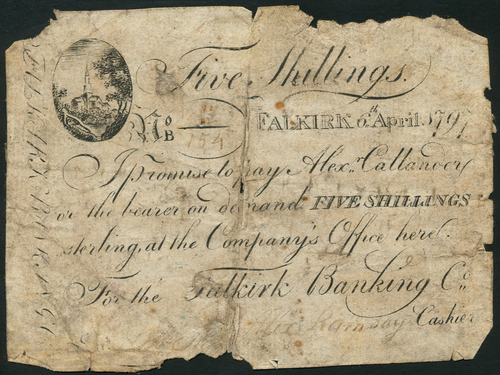 Five Shillings.
No
B
FALKIRK 6th April 1797
I promise to pay Alexr. Callander
or the bearer on demand FIVE SHILLINGS
sterling, at the Company's Office here.
For the Falkirk Banking Co.
Ramsay Cashier